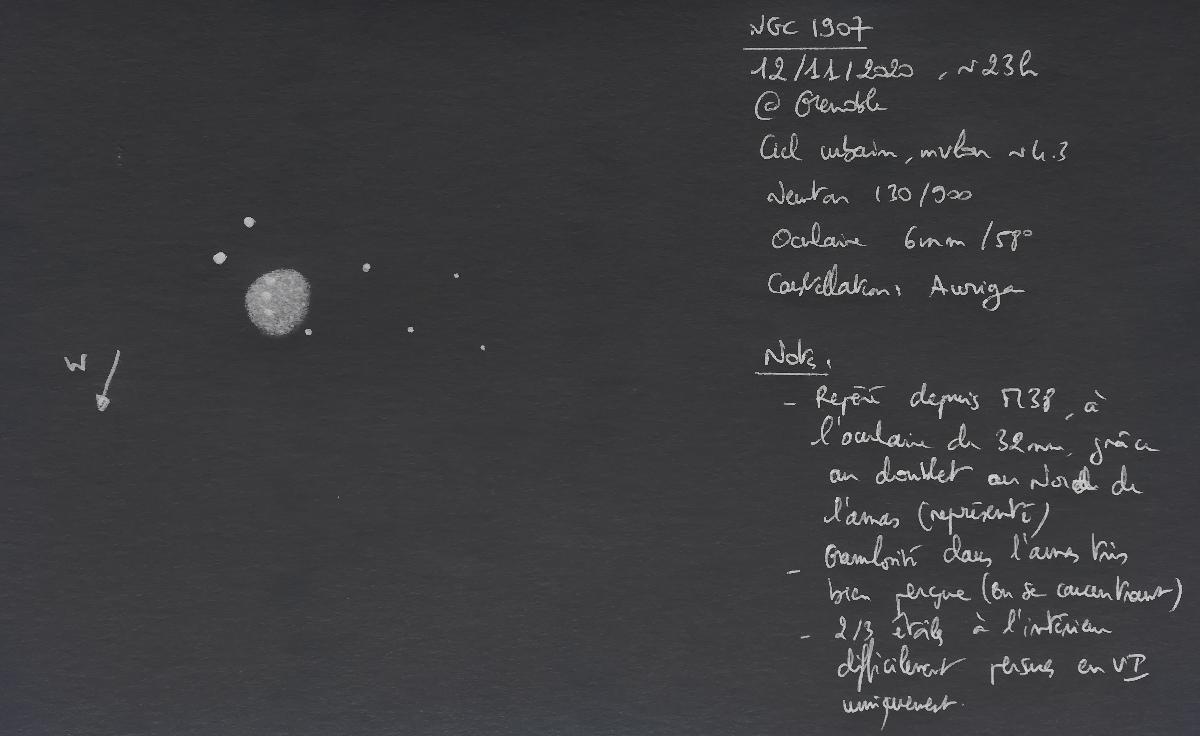 NGC 1907
12/11/2020, ~23h
@ Grenoble
Ciel urbain, mvlon ~4.3
Newton 130/900
Oculaire 6mm /58°
Constellation: Auriga
W
Note:
- Repéré depuis M38, à
l'oculaire de 32mm, grâce
au doublet au Nord de
l'amas (représenté)
- Granulosité dans l'amas très
bien perçue (en se concentrant)
- 2/3 étoiles à l'intérieur
difficilement perçues en VI
uniquement.